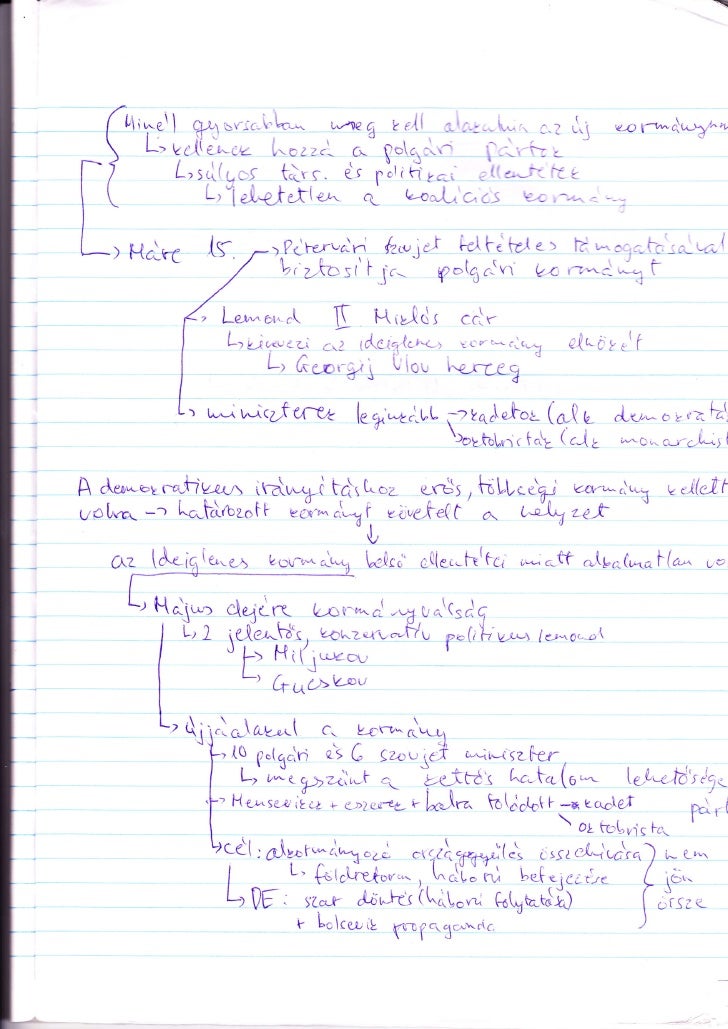 Minél gyorsabban meg kell alakulnia az új kormányn
↳ kellenek hozzá a polgári pártok
↳ súlyos társ. és politikai ellentétek
↳ lehetetlen a koalíciós kormány
→ Márc 15. → Pétervári szovjet feltételes támogatásával
biztosítja polgári kormányt
→ Lemond II Miklós cár
↳ kinevezi az ideiglenes kormány elnökét
↳ Georgij Lvov herceg
↳ miniszterek leginkább → kadetok (alk demokratá
↘ oktobristák (alk monarchist
A demokratikus irányításhoz erős, többségi kormány kellett
volna → határozott kormányt követelt a helyzet
↓
az Ideiglenes kormány belső ellentétei miatt alkalmatlan vo
↳ Május elejére kormányválság
↳ 2 jelentős, konzervatív politikus lemond
↳ Miljukov
↳ Gucskov
↳ újjáalakul a kormány
↳ 10 polgári és 6 szovjet miniszter
↳ megszűnt a kettős hatalom lehetősége
→ Mensevikek + eszerek + balra tolódott → kadet párt
oktobrista
↳ cél: alkotmányozó országgyűlés összehívása } nem
↳ földreform, háború befejezése jön
↳ DE: szar döntés (háború folytatása) össze
+ bolsevik propaganda